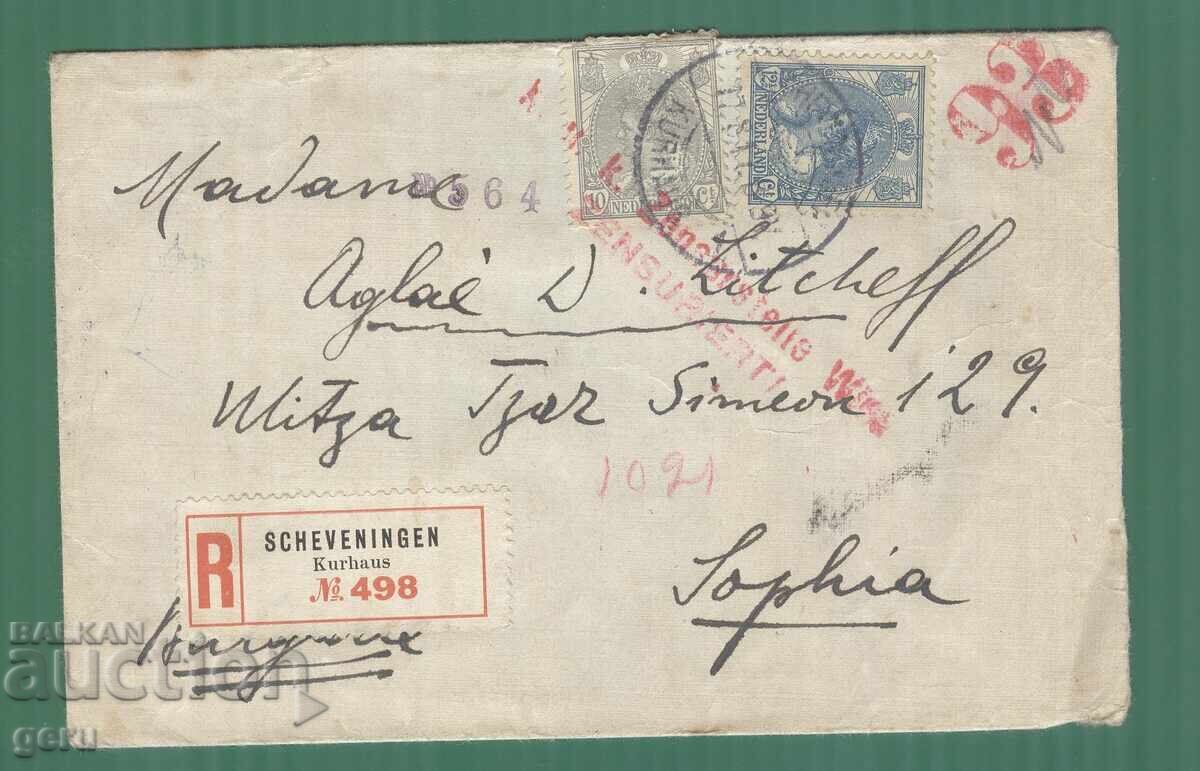 93
10 Ct
NEDERLAND
12½ Ct
NEDERLAND
564
K. Zensurstelle Wien
ZENSURIERT
Madame
Aglaé D. Litcheff
Ulitza Tzar Simeon 129.
1021
Sophia
R
SCHEVENINGEN
Kurhaus
№ 498
BALKAN
auction
geru